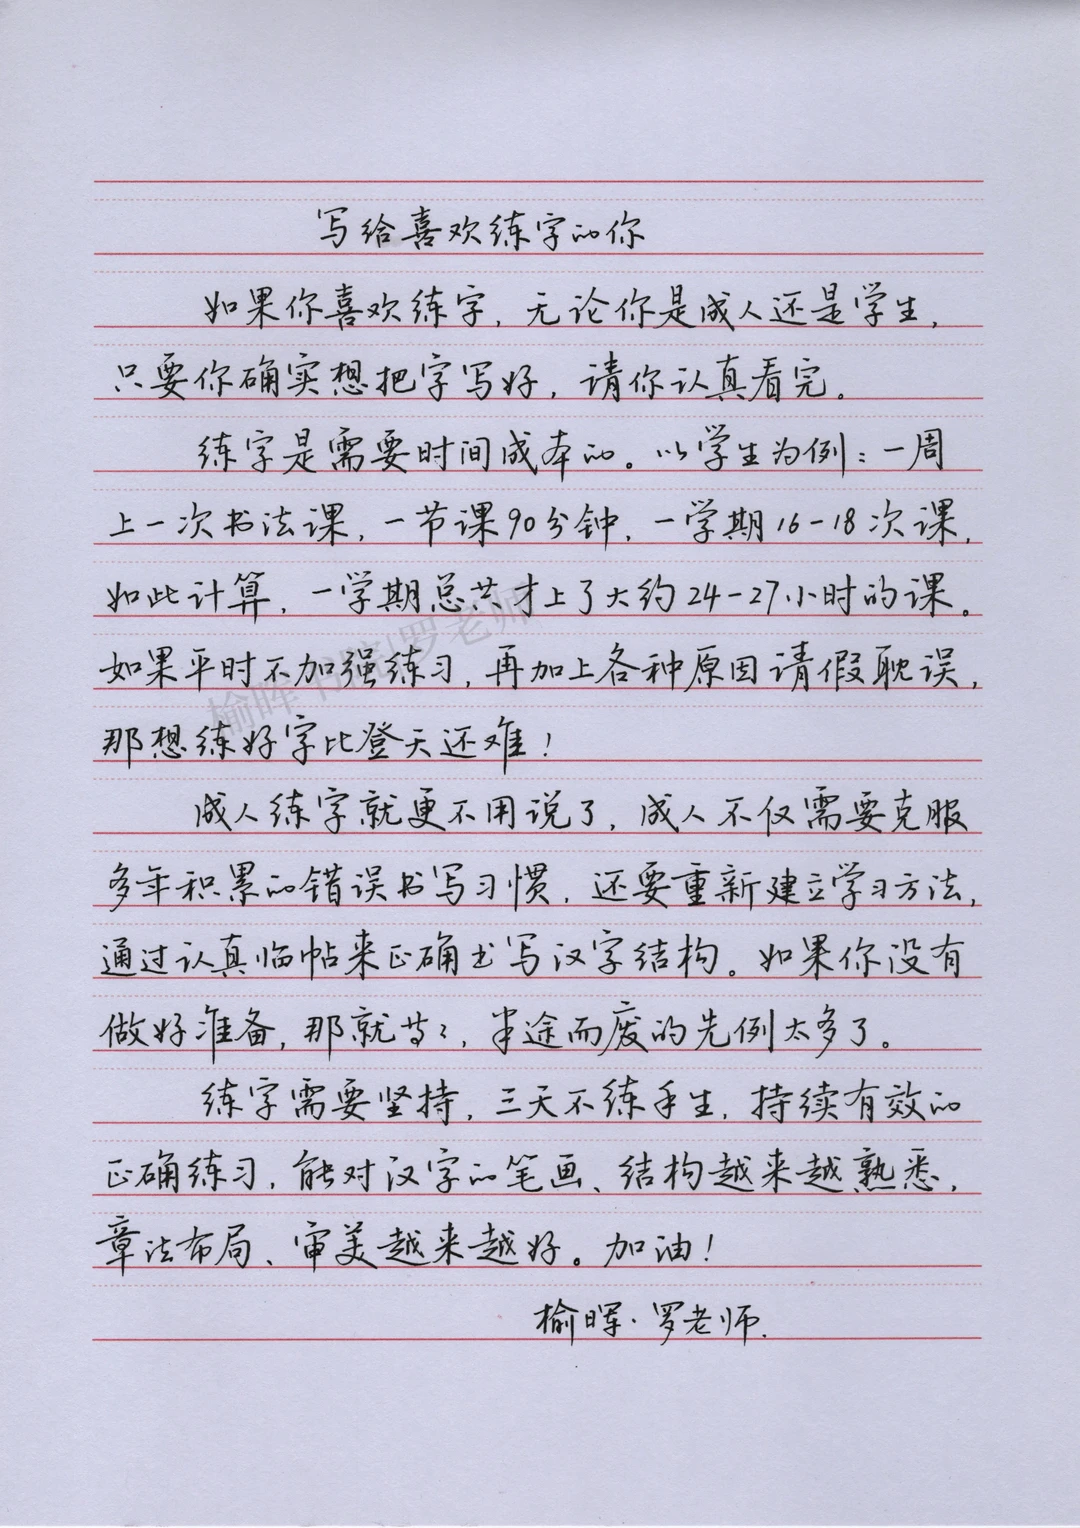 写给喜欢练字的你
如果你喜欢练字，无论你是成人还是学生，
只要你确实想把字写好，请你认真看完。
练字是需要时间成本的。以学生为例：一周
上一次书法课，一节课90分钟，一学期16-18次课，
如此计算，一学期总共才上了大约24-27小时的课。
如果平时不加强练习，再加上各种原因请假耽误，
那想练好字比登天还难！
成人练字就更不用说了，成人不仅需要克服
多年积累的错误书写习惯，还要重新建立学习方法，
通过认真临帖来正确书写汉字结构。如果你没有
做好准备，那就，半途而废的先例太多了。
练字需要坚持，三天不练手生，持续有效的
正确练习，能对汉字的笔画、结构越来越熟悉，
章法布局、审美越来越好。加油！
榆晖·罗老师.
榆晖书院|罗老师